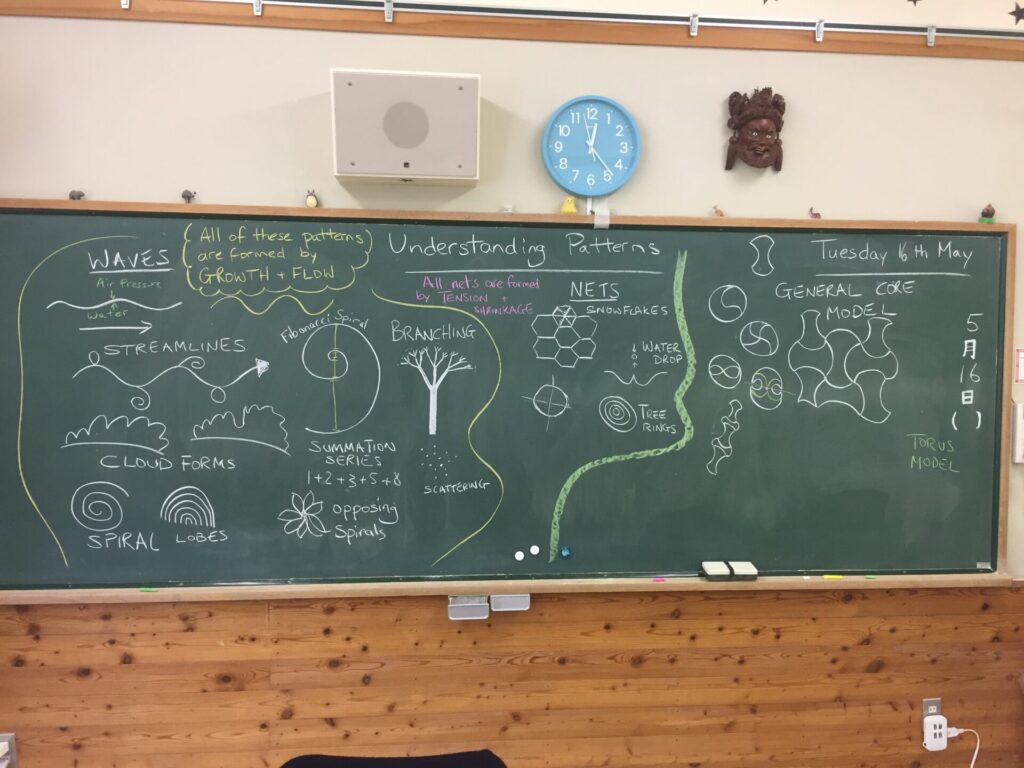 Understanding Patterns
WAVES
Air Pressure
Water
All of these patterns
are formed by
GROWTH + FLOW
STREAMLINES
CLOUD FORMS
SPIRAL
LOBES
Fibonacci Spiral
SUMMATION
SERIES
1+2+3+5+8
opposing
Spirals
BRANCHING
SCATTERING
All nets are formed
by TENSION +
SHRINKAGE
NETS
SNOWFLAKES
WATER
DROP
TREE
RINGS
Tuesday 16th May
GENERAL CORE
MODEL
TORUS
MODEL
5
月
16
日
( )
12
1
2
3
4
5
6
7
8
9
10
11